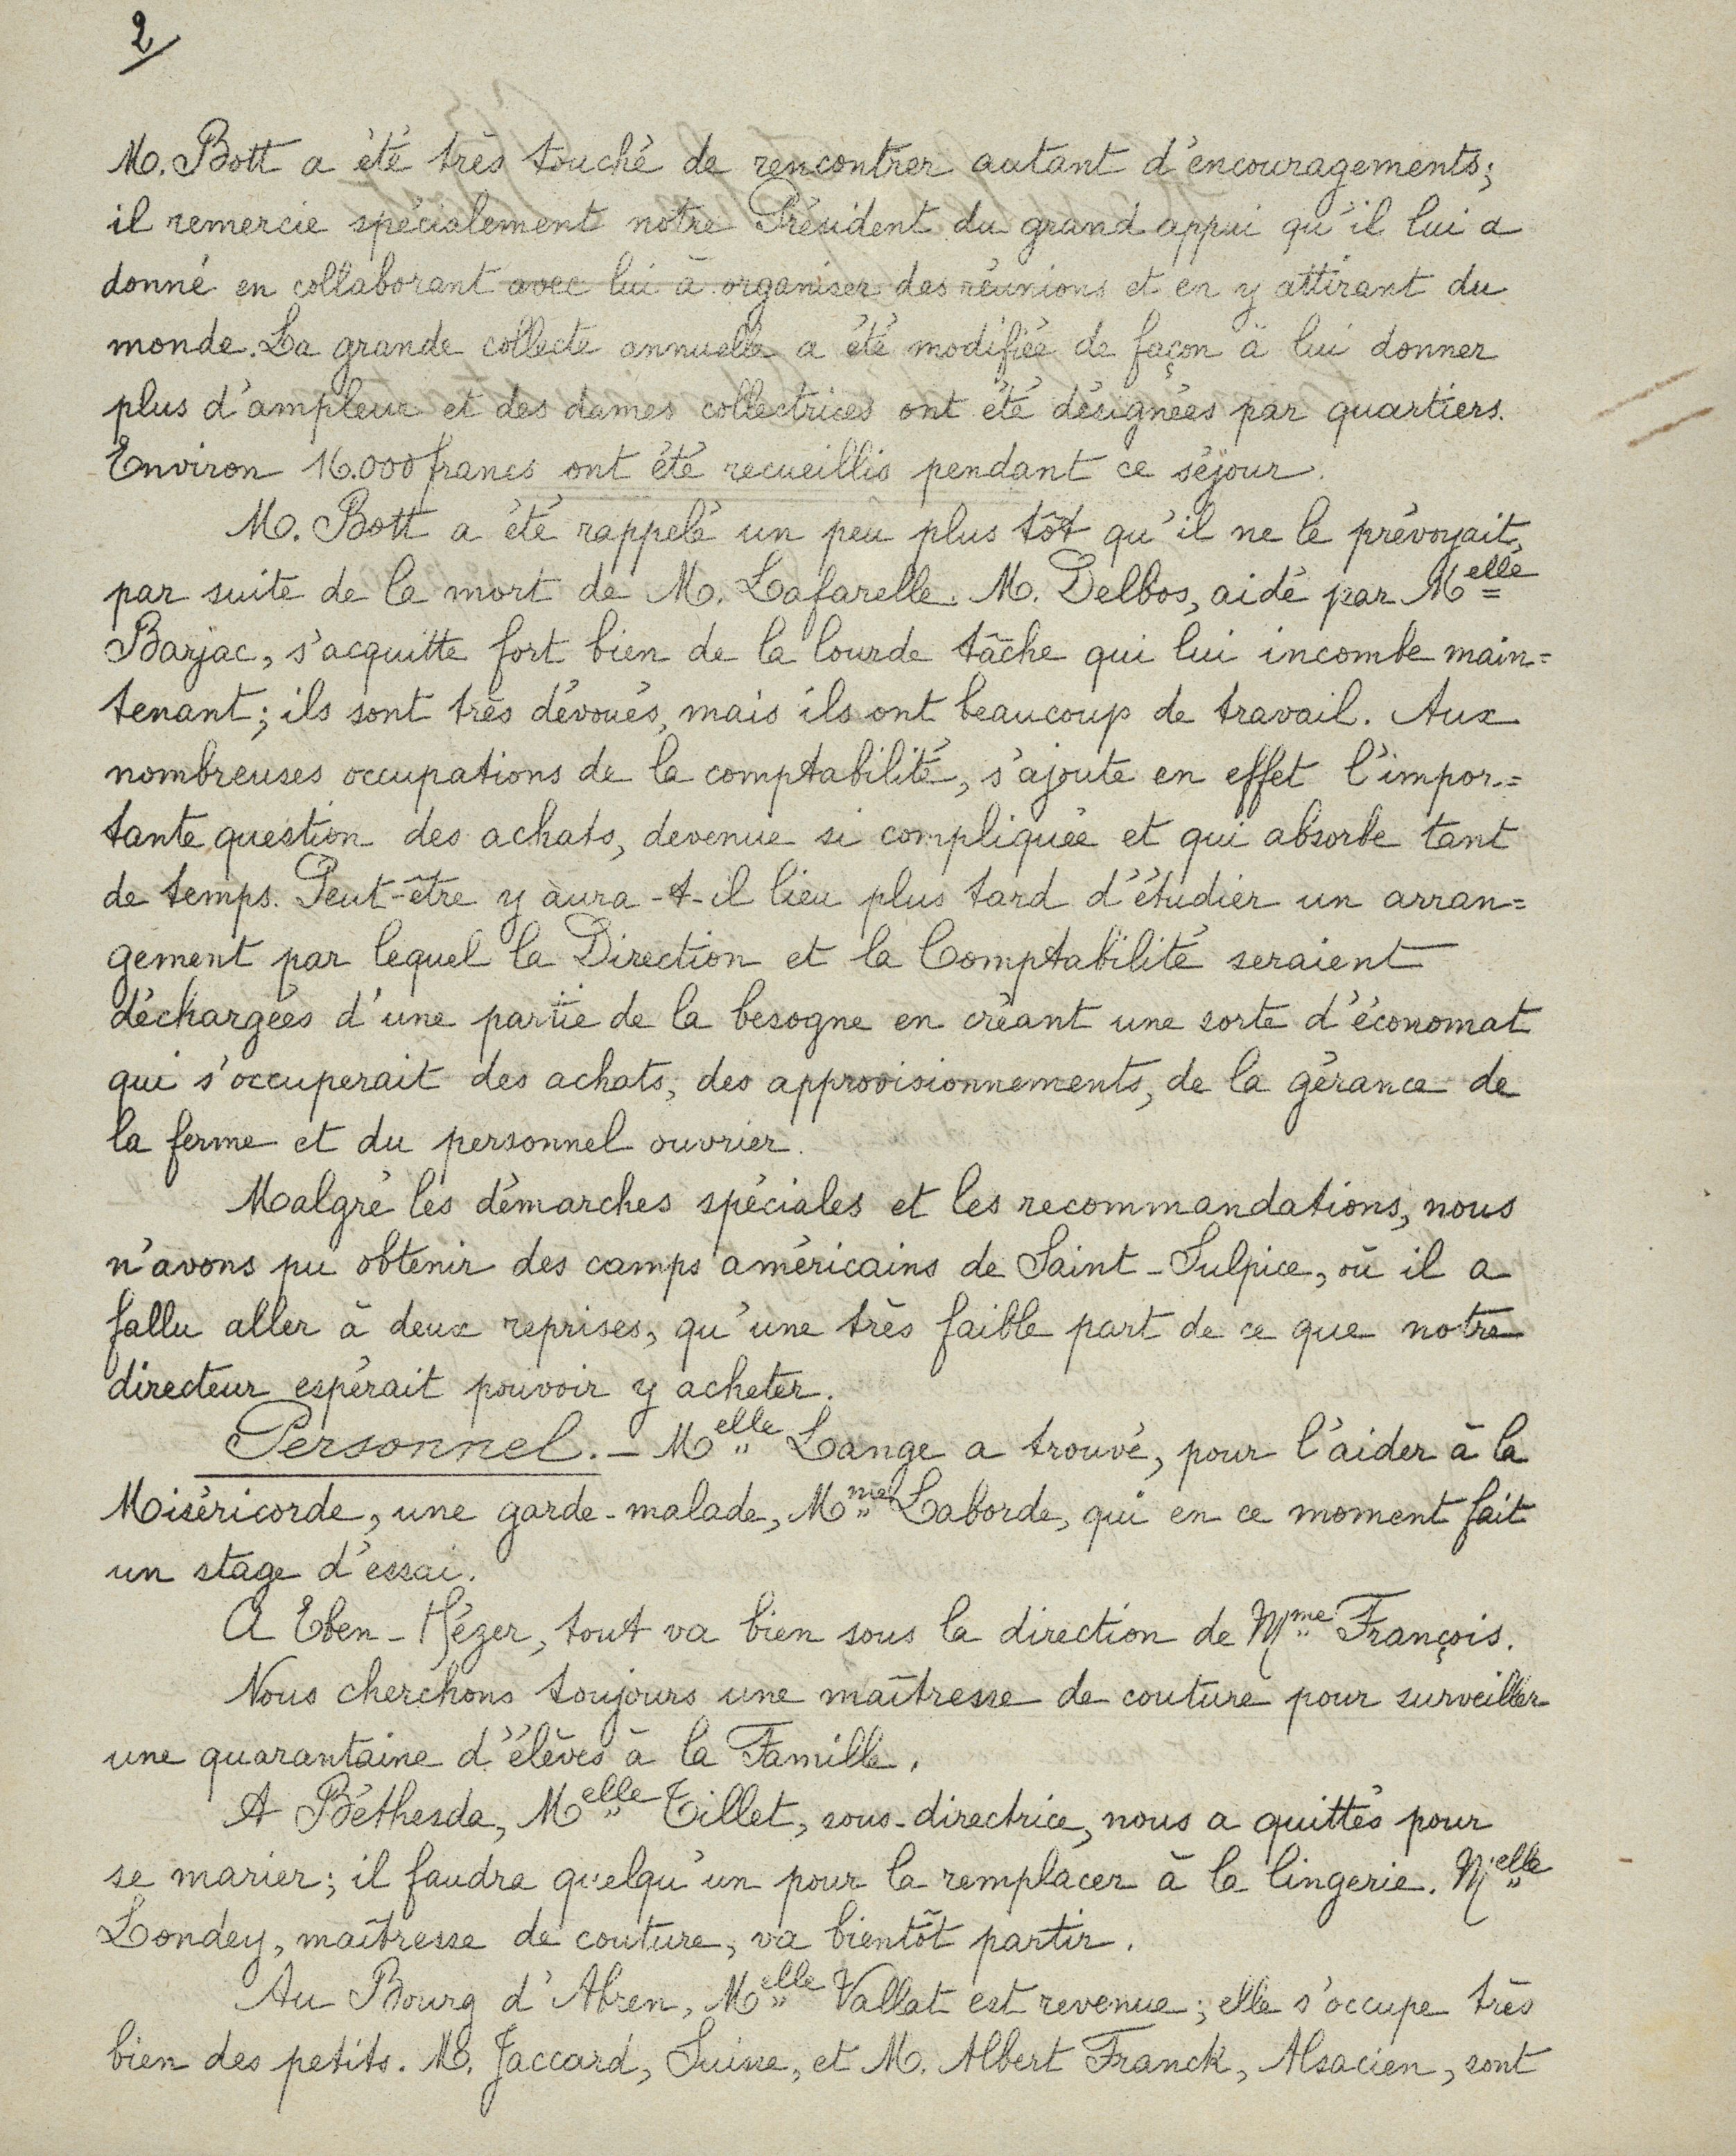 2
M. Bott a été très touché de rencontrer autant d'encouragements;
il remercie spécialement notre Président du grand appui qu'il lui a
donné en collaborant avec lui à organiser des réunions et en y attirant du
monde. La grande collecte annuelle a été modifiée de façon à lui donner
plus d'ampleur et des dames collectrices ont été désignées par quartiers.
Environ 16.000 francs ont été recueillis pendant ce séjour.
M. Bott a été rappelé un peu plus tôt qu'il ne le prévoyait,
par suite de la mort de M. Lafarelle. M. Delbos, aidé par Melle
Barjac, s'acquitte fort bien de la lourde tâche qui lui incombe main=
tenant; ils sont très dévoués, mais ils ont beaucoup de travail. Aux
nombreuses occupations de la comptabilité, s'ajoute en effet l'impor=
tante question des achats, devenue si compliquée et qui absorbe tant
de temps. Peut-être y aura-t-il lieu plus tard d'étudier un arran=
gement par lequel la Direction et la Comptabilité seraient
déchargées d'une partie de la besogne en créant une sorte d'économat
qui s'occuperait des achats, des approvisionnements, de la gérance de
la ferme et du personnel ouvrier.
Malgré les démarches spéciales et les recommandations, nous
n'avons pu obtenir des camps américains de Saint-Sulpice, où il a
fallu aller à deux reprises, qu'une très faible part de ce que notre
directeur espérait pouvoir y acheter.
Personnel. - Melle Lange a trouvé, pour l'aider à la
Miséricorde, une garde-malade, Mme Laborde, qui en ce moment fait
un stage d'essai.
A Eben-Hézer, tout va bien sous la direction de Mme François.
Nous cherchons toujours une maîtresse de couture pour surveiller
une quarantaine d'élèves à la Famille.
A Béthesda, Melle Tillet, sous-directrice, nous a quittés pour
se marier; il faudra quelqu'un pour la remplacer à la lingerie. Melle
Londey, maîtresse de couture, va bientôt partir.
Au Bourg d'Abren, Melle Vallat est revenue; elle s'occupe très
bien des petits. M. Jaccard, Suisse, et M. Albert Franck, Alsacien, sont